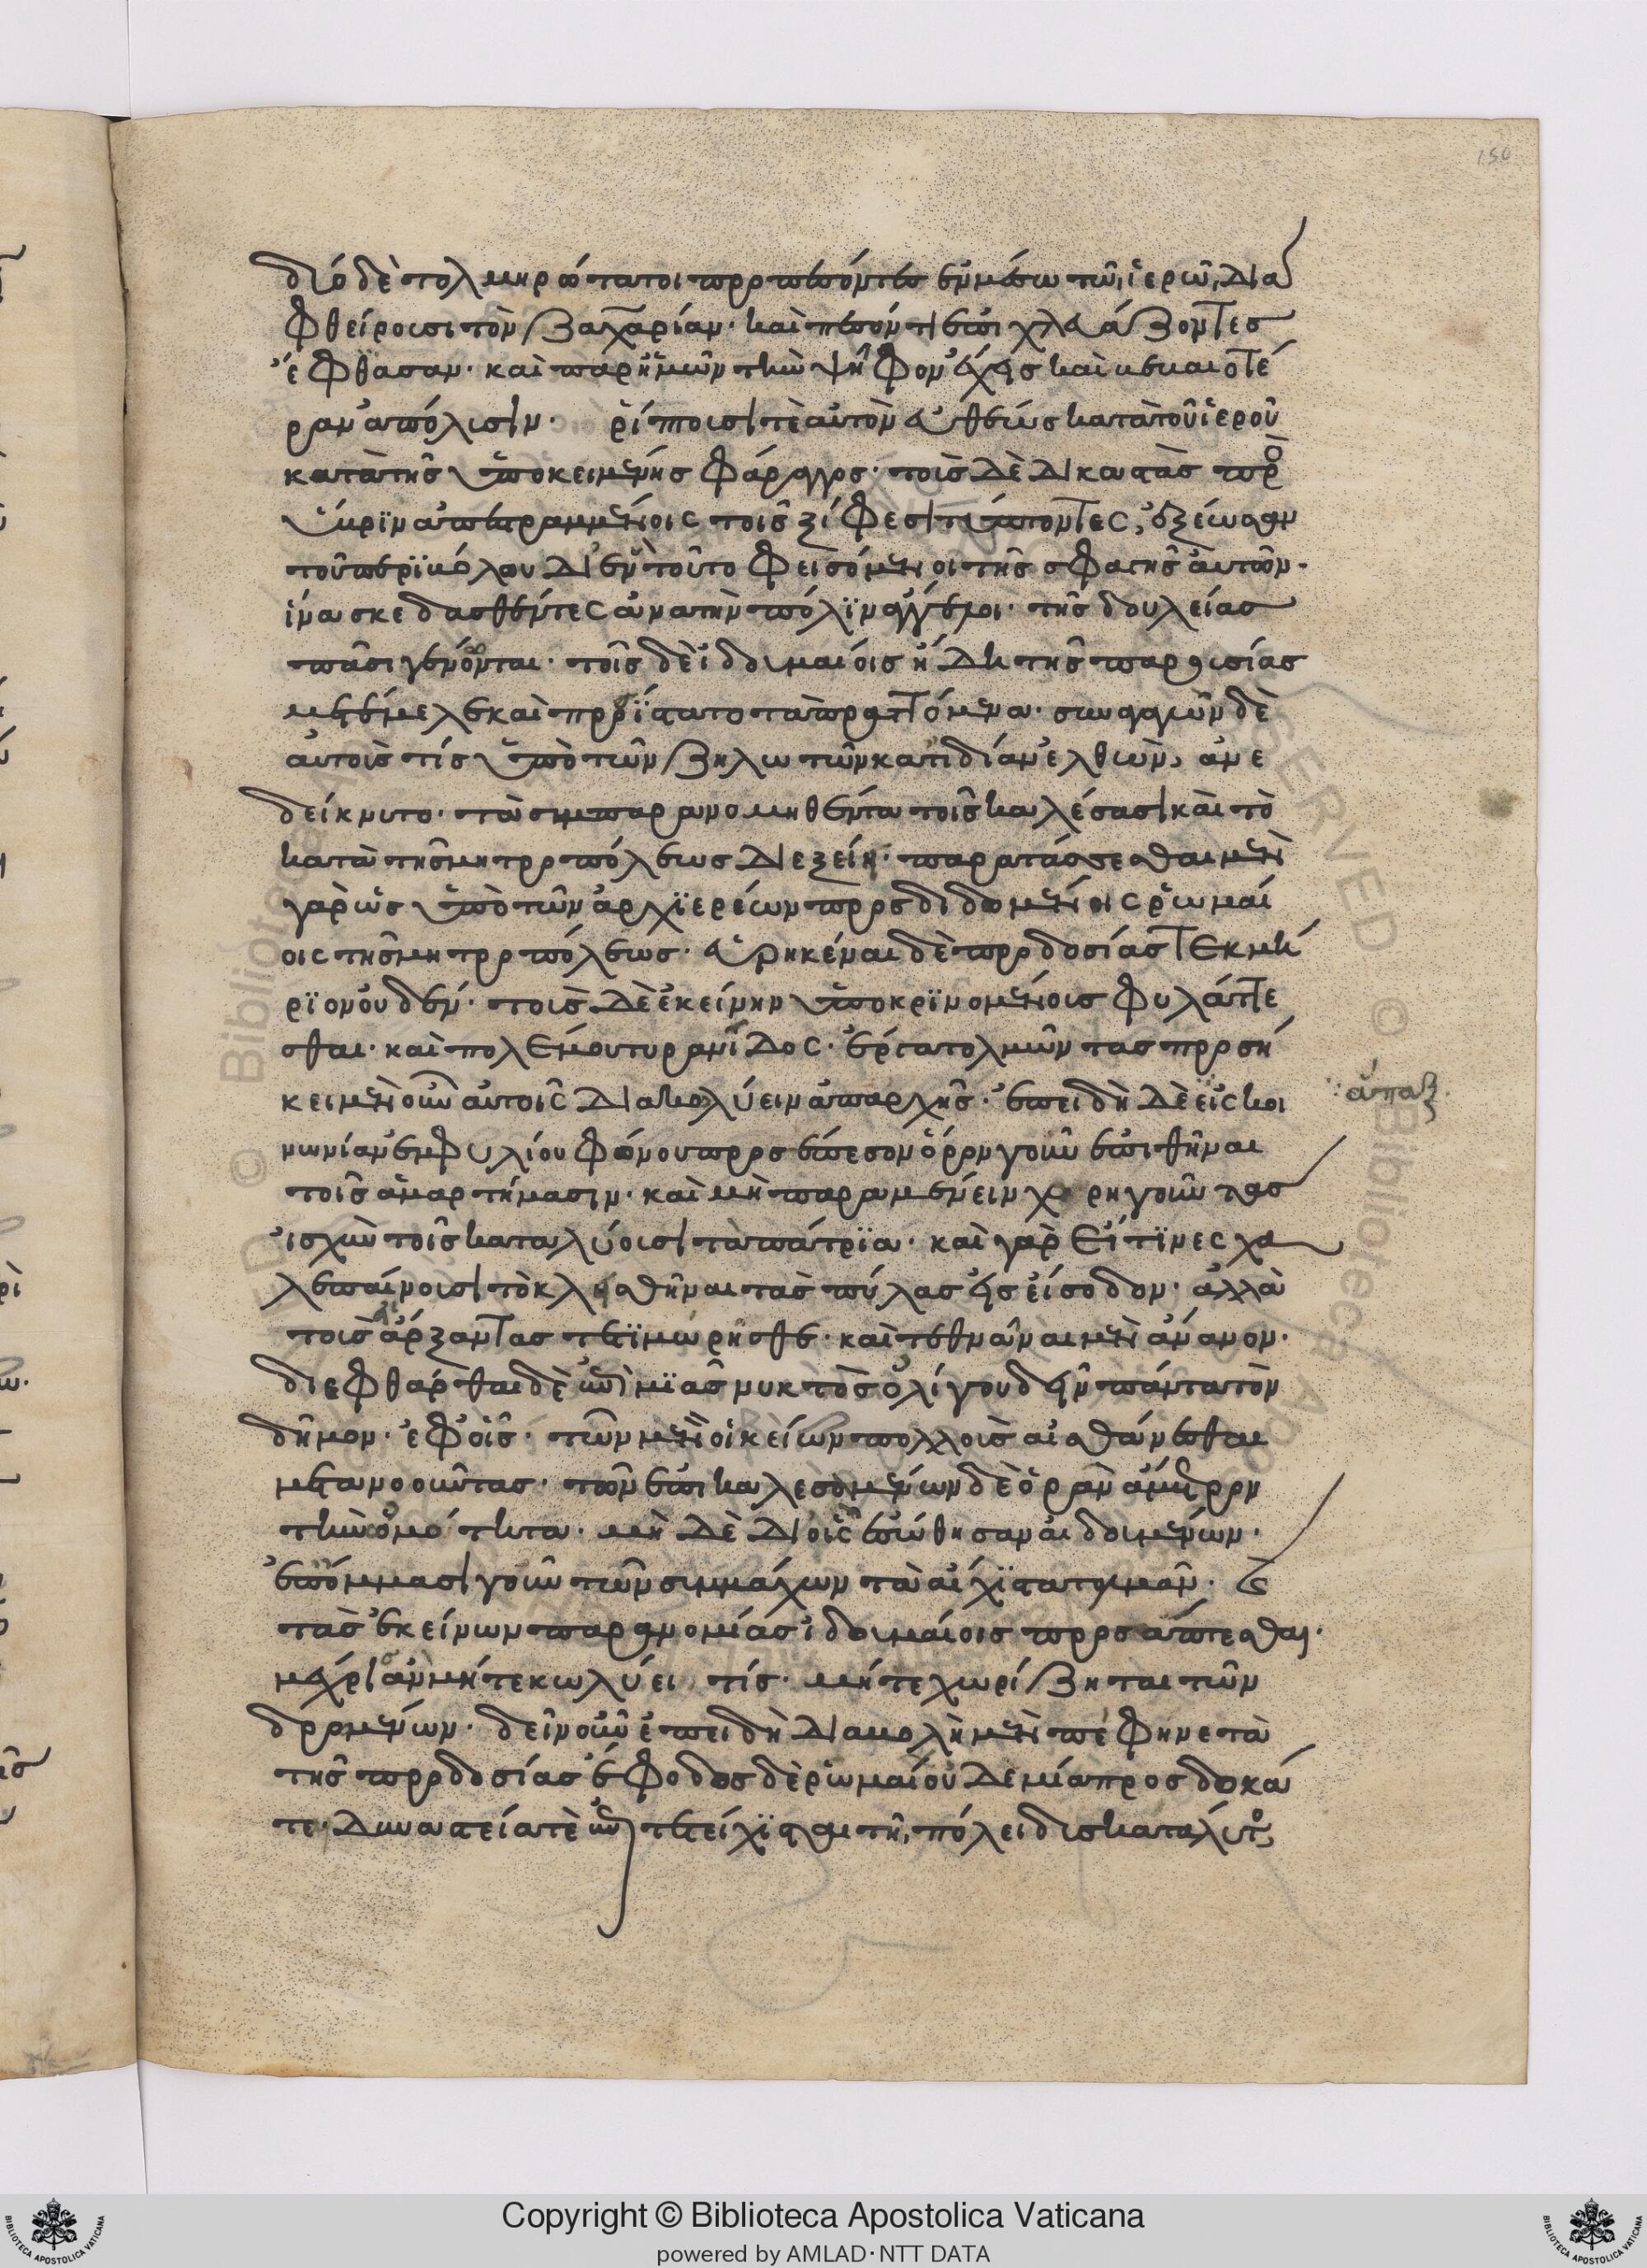 δύο δὲ τολμηρώτατοι προσπεσόντες ἐν μέσω τῶ ἱερῶ, δια
φθείρουσι τὸν ζαχαρίαν· καὶ πεσόντι ἐπιχλευάζοντες
ἔφθασαν· καὶ παρ ἡμῶν τὴν ψῆφον ἔχεις καὶ βεβαιοτέ
ραν ἀπόλυσιν· ῥίπτουσι τὲ αὐτὸν εὐθέως κατὰ τοῦ ἱεροῦ
κατὰ τῆς ὑποκειμένης φάραγγος· τοὺς δὲ δικαστὰς πρὸ
ὕβριν ἀπεστραμμένοις τοῖς ξίφεσι τύπτοντες, ἐξέωσαν
τοῦ περιβόλου δι ἓν τοῦτο φεισόμενοι τῆς σφαγῆς αὐτῶν·
ἵνα σκεδασθέντες ἀνὰ τὴν πόλιν ἄγγελοι· τῆς δουλείας
πᾶσι γένωνται· τοῖς δὲ ἰδουμαίοις ἤδη τῆς παρουσίας
μετέμελε καὶ προσίστατο τὰ πραττόμενα· συναγαγὼν δὲ
αὐτοὺς τίς ὑπὸ τῶν ζηλωτῶν κατιδίαν ἐλθὼν, ἀνε
δείκνυτο· τὰ συμπαρανομηθέντα τοῖς καλέσασι καὶ τὸ
κατὰ τῆς μητροπόλεως διεξείη· παρατάσσεσθαι μὲν
γὰρ ὡς ὑπὸ τῶν ἀρχιερέων προσδιδομένοις ῥωμαί
οις τῆς μητροπόλεως· εὑρηκέναι δὲ προδοσίας τεκμή
ριον οὐδέν· τοὺς δὲ ἐκείνην ὑποκρινομένοις φυλάττε
σθαι· καὶ πολέμου τυραννίδος· ἔργα τολμῶντας προσή
κει μὲν οὖν αὐτοῖς διακωλύειν ἀπαρχῆς· ἐπειδὴ δὲ εἰς κοι
ἅπαξ
νωνίαν ἐμφυλίου φόνου προσέπεσον ὅρον γοῦν ἐπιθῆναι
τοῖς ἁμαρτήμασιν· καὶ μὴ παραμένειν χορηγοῦντας
ἰσχὺν τοῖς καταλύουσι τὰ πάτρια· καὶ γὰρ εἴ τινες χα
λεπαίνουσι τὸ κλεισθῆναι τὰς πύλας εἰς εἴσοδον· ἀλλὰ
τοὺς ἄρξαντας τετιμωρῆσθε· καὶ τεθνᾶναι μὲν ἄνανον·
διεφθάρθαι δὲ ἐπὶ μιᾶς νυκτὸς ὀλίγου δεῖν πάντα τὸν
δῆμον· ἐφοἷς· τῶν μὲν οἰκείων πολλοὺς αἰσθάνεσθαι
μετανοοῦντας· τῶν ἐπικαλεσομένων δὲ ὁρᾶν ἄμετρον
τὴν ὠμότητα· μὴ δὲ δι οὓς ἐσώθησαν αἰδουμένων·
ἐπόμμασι γοῦν τῶν συμμάχων τὰ αἴσχιστα τολμᾶν· καὶ
τὰς ἐκείνων παρανομίας ἰδουμαίοις προσάπτεσθαι·
μέχρι ἂν μήτε κωλύει τίς· μήτε χωρίζηται τῶν
δρομένων· δεῖν οὖν ἐπειδὴ διαβολὴ μὲν πέφηνε τὰ
τῆς προδοσίας ἔφοδος δὲ ῥωμαίου δεμία προσδοκά
τε· δυναστεία τὲ ἐπιτετείχισται τῆ πόλει δυσκατάλυτος,